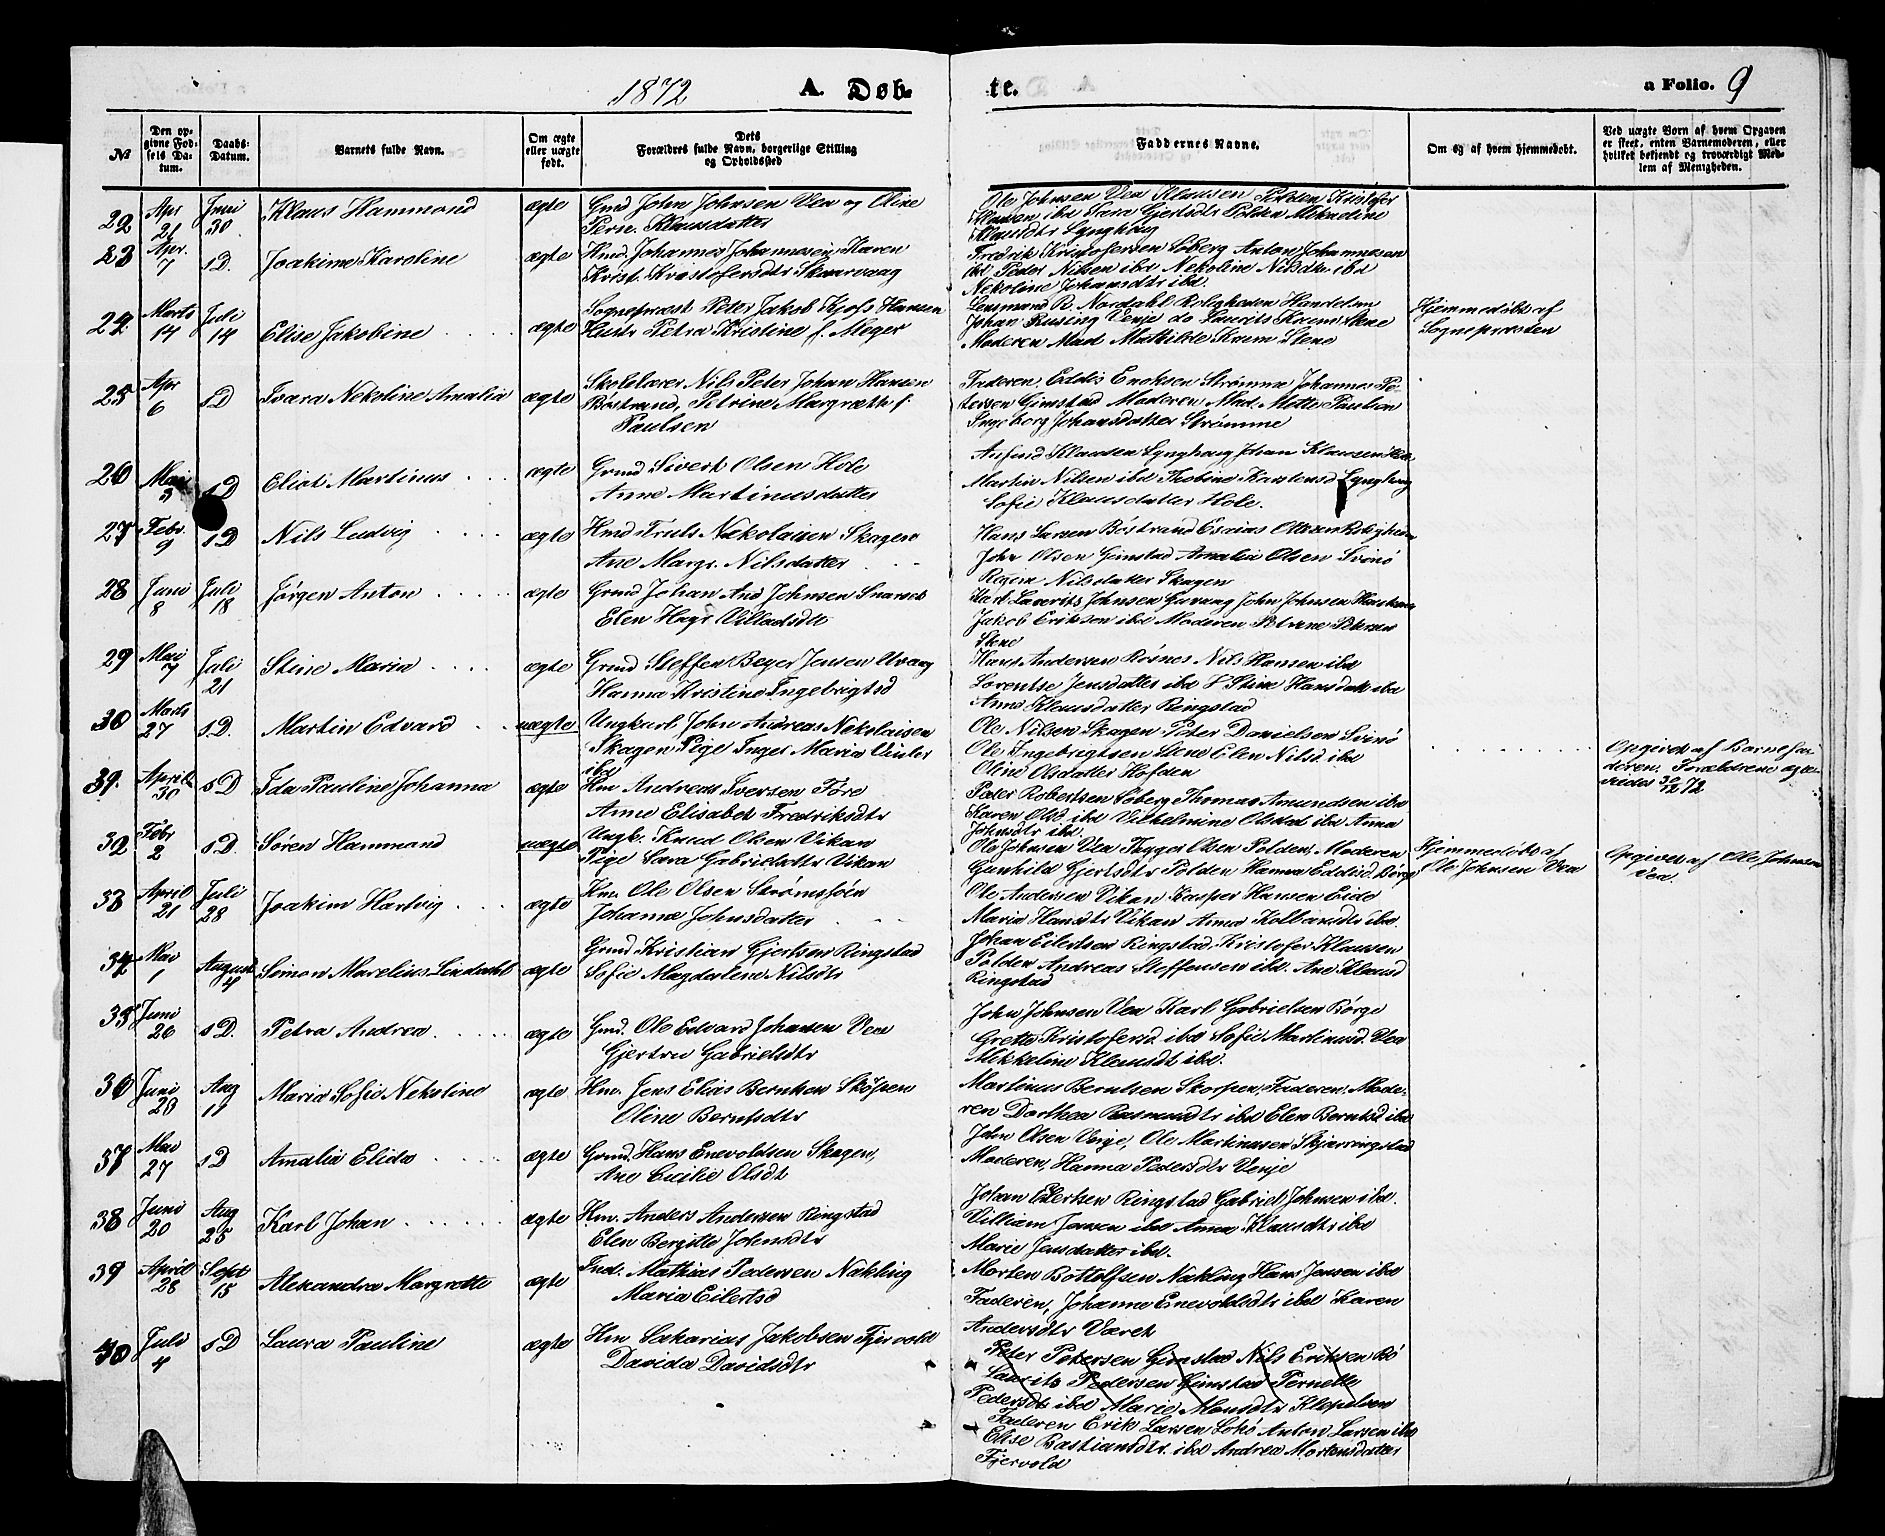 1872 A. Døb- te. a Folio. 9
№ Den opgivne Fødsels Datum. Daabs-Datum. Barnets fulde Navn. Om ægte eller uægte født. Dets Forældres fulde Navn, borgerlige Stilling og Opholdssted Faddernes Navne. Om og af hvem hjemmedøbt. Ved uægte Børn af hvem Opgaven er skeet, enten Barnemoderen, eller hvilket bekjendt og troværdigt Medlem af Menigheden.
22 Apr 21 Juni 30 Klaus Hammond ægte Gmd John Johnsen Vea og Oline
Perne. Klausdatter
Ole Johnsen Vea Klausen Polden, Kristofer
Klausen ibd Gjertsdtr Polden Mekaeline
Klausdtr Lynghaug
23 Apr. 7 s.D. Joakime Karoline ægte Hmd. Johannes Johannesen, Karen
Krist. Kristofersdtr Skaarvaag
Fredrik Kristofersen Soberg Anton Johannesen
ibd, Peder Nilsen ibd Nekoline Nilsdtr ibd
Nekoline Johansdtr ibd.
24 Marts 14 Juli 14 Elise Jakobine ægte Sognepræst Peter Jakob Hansen
Hustr Petra Kristine f. Meyer
Lensmand R. Nordahl Roligheden Handelsm
Johan Rusing Venje do Laurits Krum Stene
Moderen Mad Mathilde Krum Stene
Hjemmedøbt af
Sognepræsten
25 Apr 6 s.D Nekoline Amalia ægte Skolelærer Nils Peter Johan Hansen
Børstrand, Petrine Margrethe f.
Paulsen
Faderen, Eddis Enoksen Strømme Johannes Pe-
tersen Gimstad Moderen Mad. Mette Paulsen
Ingeborg Johansdatter Strømme
26 Mai 3 s.D Eliot Martinus ægte Grmd Sivert Olsen Hole
Anne Martinusdatter
Klausen Lynghaug Johan Klausen
Martin Nilsen ibd Karstensd Lynghaug
Sofie Klausdatter Hole.
27 Febr. 9 s.D Nils Ludvig ægte Hmd Truls Nekolaisen Skagen
Ane Margr. Nilsdatter
Hans Larsen Børstrand Esaias Ottesen Roligheden
John Olsen Gimstad Amalia Olsen Svinø
Nilsdatter Skagen
28 Juni 8 Juli 18 Jørgen Anton ægte Grmd Johan And Johnsen Snarset
Elen Hagr Villadsdtr
Karl Laurits Johnsen Guvaag John Johnsen
Jakob Eriksen ibd Moderen Petrine Petersen
Stene
29 Mai 7 Juli 21 Stine Maria ægte Grmd Steffen Beyer Jensen Urvaag
Hanna Kristine Ingebrigtsd
Hans Andersen Røsnes Nils Hansen ibd
Lorentse Jensdatter ibd Stine Hansdatt ibd
Anne Klausdatter Ringstad
30 Marts 27 s.D. Martin Edvard uægte Ungkarl John Andreas Nekolaisen
Skagen Pige Inger Maria Vinter
ibd
Ole Nilsen Skagen Peter Danielsen Svinø
Ole Ingebrigtsen Stene Elen Nilsd ibd
Oline Olsdatter Hofden
Opgivet af Barnefa-
deren. Forældrene
72
31. April 30 s.D Ida Pauline Johanna ægte Hm Andreas Iversen Føre
Anne Elisabet Fredriksdtr
Peder Robertsen Soberg Thomas Amundsen ibd
Karen Olsd ibd Vilhelmine Olsdat ibd Anna
Johnsdtr ibd.
32 Febr 2 s.D. Søren Hammond uægte Ungk. Knud Olsen Vikan
Pige Sara Gabrielsdtr Vikan
Ole Johnsen Vea Olsen Polden, Moderen
Gunhild Gjertsdtr Polden Hanna Eddisd Børge
Hjemmedøbt af
Ole Johnsen Vea
Opgivet af Ole Johnsen
Vea.
33 April 21 Juli 28 Joakim Hartvig ægte Hm. Ole Olsen Strømsjøen
Johanna Johnsdatter
Ole Andersen Vikan Kasper Hansen Eide
Maria Hansdtr Vikan Anna ibd
34 Mai 1 August 4 Simon Marelius Lindahl ægte Grmd Kristian Gjertsen Ringstad
Sofie Magdalene Nilsdtr
Johan Eilertsen Ringstad Kristofer Klausen
Polden Andreas Steffensen ibd. Ane Klausd
Ringstad
35 Juni 26 s.D. Petra Andrea ægte Gmd. Ole Edvard Johansen Vea
Gjertru Gabrielsdtr
John Johnsen Vea Karl Gabrielsen Børge
Grette Kristofersd ibd Sofie Martinusd Vea
Mekkeline Klausdt ibd.
36 Juni 28 Aug 11 Maria Sofie Nekoline ægte Hm. Jens Elias Berntsen Skorpen
Oline Berntsdtr
Martinus Berntsen Skorpen, Faderen, Mode-
ren Dorthea Rasmusdtr ibd Elen Berntsd ibd
37 Mai 27 s.D Amalia Elida ægte Grmd. Hans Enevoldsen Skagen,
Ane Cicilie Olsdt
John Olsen Venje, Ole Martinusen
Moderen, Hanna Pedersdtr Venje
38 Juni 20 Aug 25 Karl Johan ægte Hm. Anders Andersen Ringstad
Elen Bergitte Johnsdtr
Johan Eilertsen Ringstad Gabriel Johnsen ibd.
Villiam Jensen ibd Anna Klausdtr ibd
Marie Jensdatter ibd.
39 April 28 Sept 15 Aleksandra Margrette ægte Ind. Mathias Pedersen Nækling
Maria Eilertsd
Morten Bottolfsen Nækling Hans Jensen ibd
Faderen, Johanne Enevoldsdtr ibd Karen
Andersdtr Været
40 Juli 4 s.D Laura Pauline ægte Hm Sakarias Jakobsen Fjervold
Davida Davidsdtr
Peter Petersen Gimstad Nils Eriksen Bø
Laurits Pedersen Gimstad Pernelle
Pedersdtr ibd Marie Monsdtr
Faderen Erik Larsen Sokø Anton Larsen ibd
Elise Bastiansdtr. ibd Andrea Mortensdatter
Fjervold